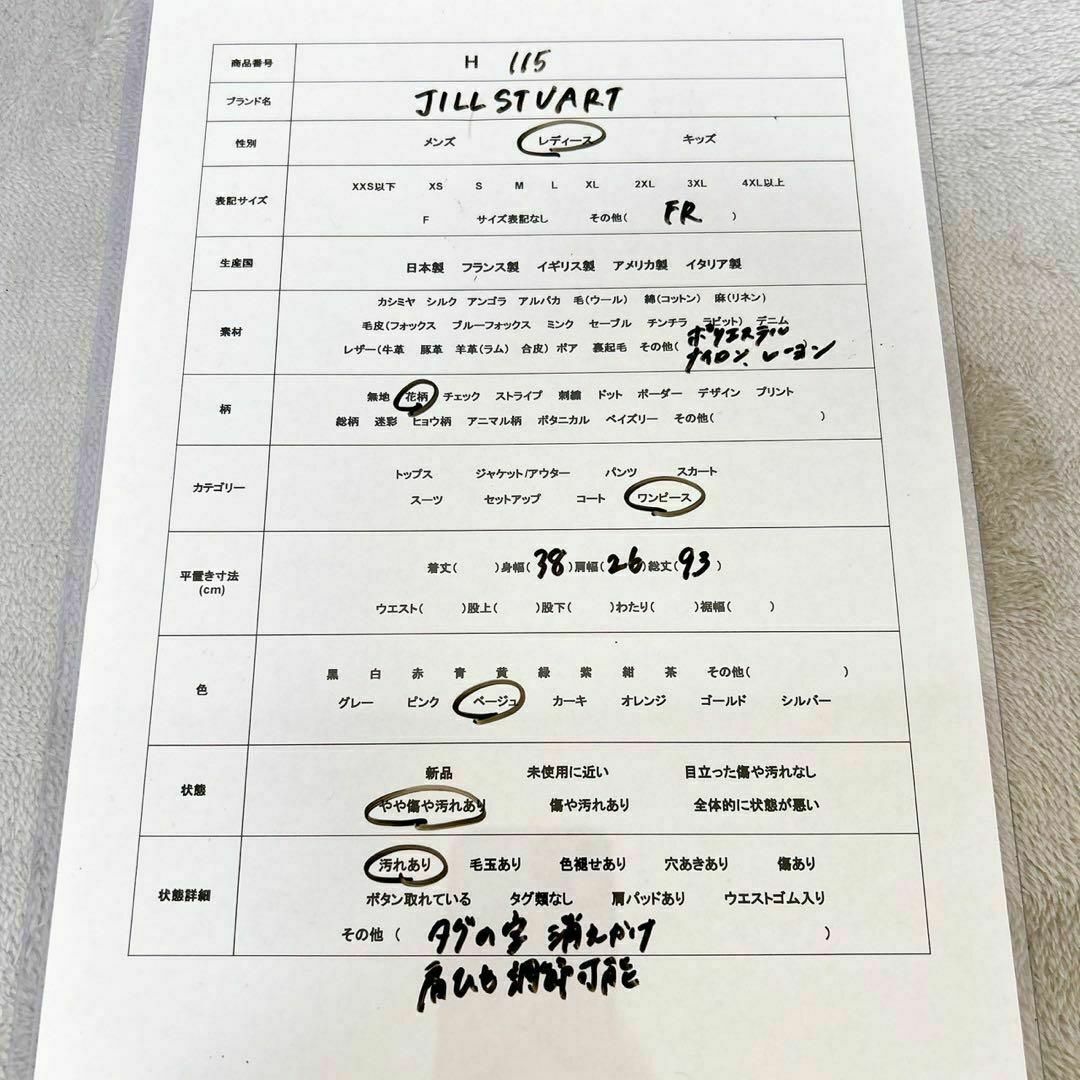 商品番号 H 115
ブランド名 JILL STUART
性別 メンズ レディース キッズ
表記サイズ
XXS以下 XS S M L XL 2XL 3XL 4XL以上
F サイズ表記なし その他( FR )
生産国 日本製 フランス製 イギリス製 アメリカ製 イタリア製
素材
カシミヤ シルク アンゴラ アルパカ 毛(ウール) 綿(コットン) 麻(リネン)
毛皮(フォックス ブルーフォックス ミンク セーブル チンチラ ラビット) デニム
レザー(牛革 豚革 羊革(ラム) 合皮) ボア 裏起毛 その他( ポリエステル
ナイロン、レーヨン
柄
無地 花柄 チェック ストライプ 刺繍 ドット ボーダー デザイン プリント
総柄 迷彩 ヒョウ柄 アニマル柄 ボタニカル ペイズリー その他( )
カテゴリー
トップス ジャケット/アウター パンツ スカート
スーツ セットアップ コート ワンピース
平置き寸法
(cm)
着丈( )身幅( 38 )肩幅( 26 )総丈( 93 )
ウエスト( )股上( )股下( )わたり( )裾幅( )
色
黒 白 赤 青 黄 緑 紫 紺 茶 その他( )
グレー ピンク ベージュ カーキ オレンジ ゴールド シルバー
状態
新品 未使用に近い 目立った傷や汚れなし
やや傷や汚れあり 傷や汚れあり 全体的に状態が悪い
状態詳細
汚れあり 毛玉あり 色褪せあり 穴あきあり 傷あり
ボタン取れている タグ類なし 肩パッドあり ウエストゴム入り
その他 ( タグの字 消えかけ )
肩ひも 調節可能